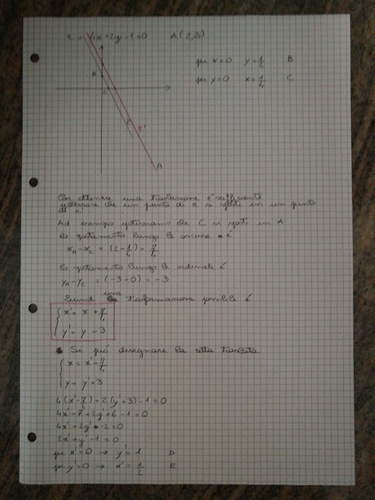 r = 4x+2y-1=0 A(2,3)
per x=0 y=1/2 B
per y=0 x=1/4 C
B
C
r'
A
Per ottenere una traslazione è sufficiente
ipotizzare che un punto di r si sposti in un punto
di r'
Ad esempio ipotizziamo che C si sposti in A
lo spostamento lungo le ascisse è
xA-xC = (2-1/4) = 7/4
lo spostamento lungo le ordinate è
yA-yC = (-3-0) = -3
Quindi una trasformazione possibile è
{ x' = x + 7/4
y' = y - 3
Si può disegnare la retta traslata
{ x = x' - 7/4
y = y' + 3
4(x'-7/4)+2(y'+3)-1=0
4x'-7+2y'+6-1=0
4x'+2y'-2=0
2x'+y'-1=0
per x'=0 → y'=1 D
per y'=0 → x'=1/2 E